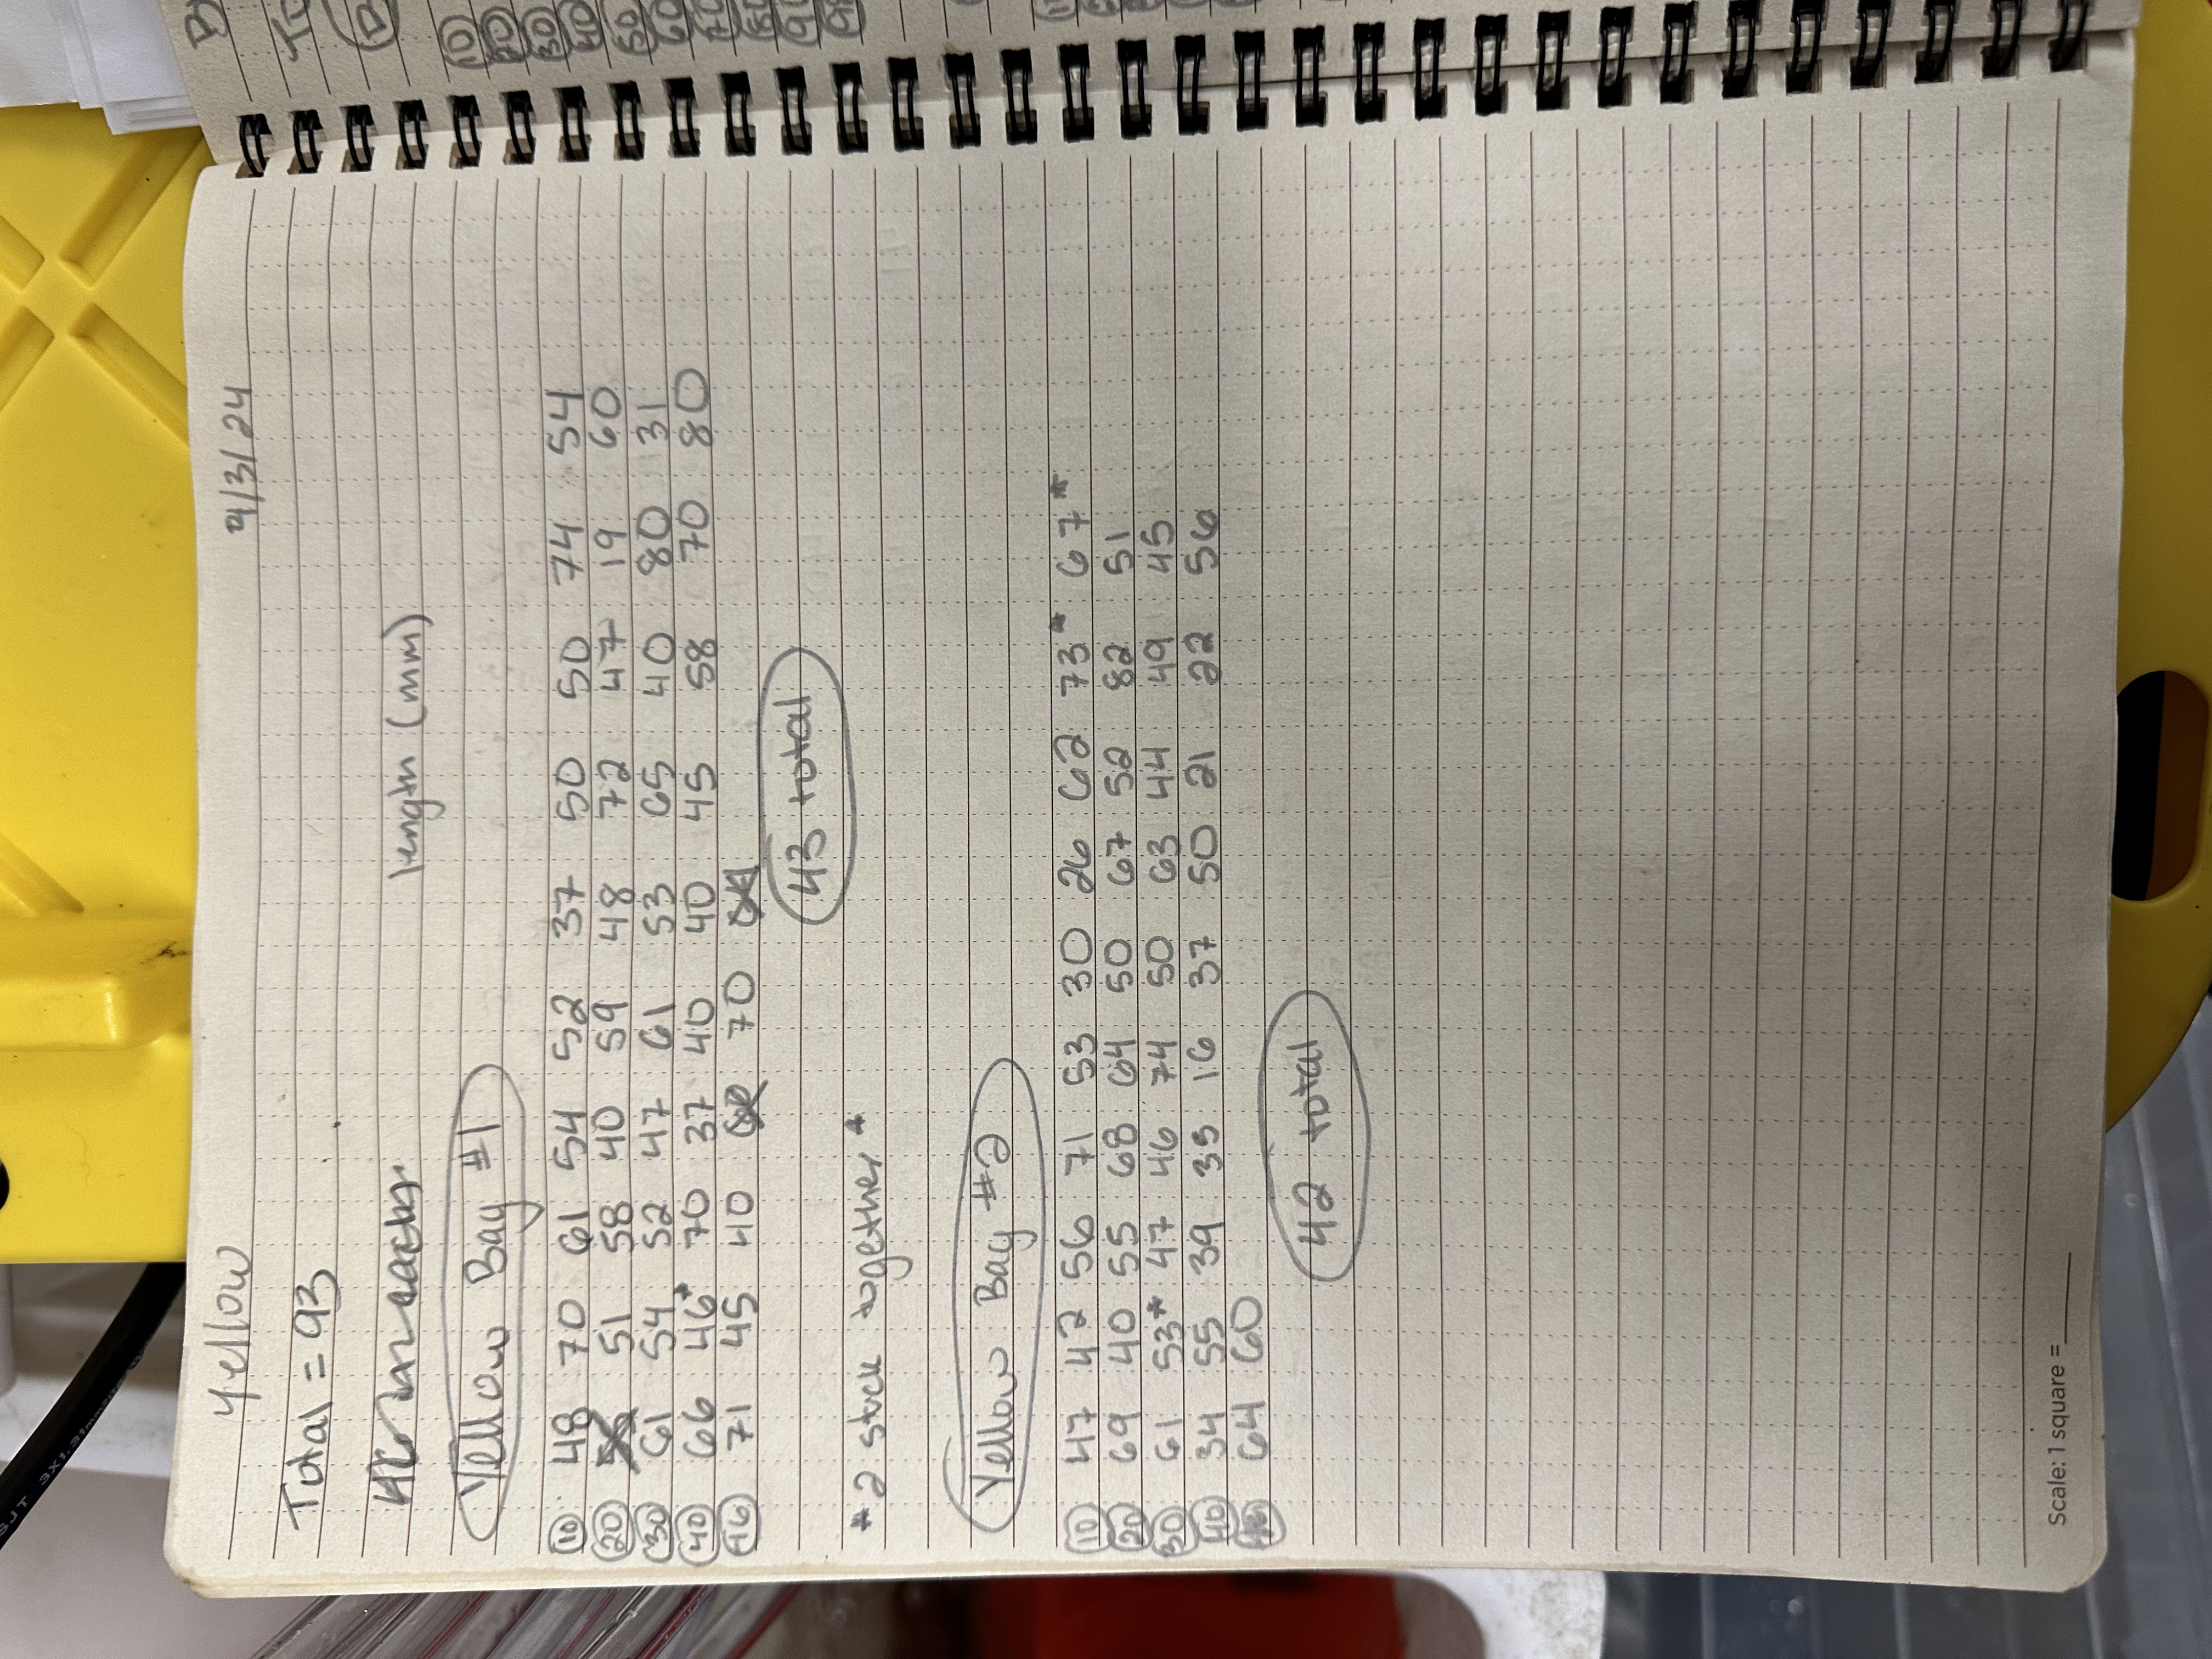 SJT 3X1.31mm²
Yellow 9/3/24
Total = 93
46 in each
length (mm)
Yellow Bag #1
10 48 70 61 54 52 37 50 50 74 54
20 51 58 40 59 48 72 47 19 60
30 61 54 52 47 61 53 65 40 80 31
40 66 46* 70 37 40 40 45 58 70 80
46 71 45 40 70
43 total
*2 stck together*
Yellow Bag #2
10 47 42 56 71 53 30 26 62 73* 67*
20 69 40 55 68 64 50 67 52 82 51
30 61 53* 47 46 74 50 63 44 49 45
40 34 55 39 35 16 37 50 21 22 56
64 60
42 total
Scale: 1 square =
10
70
30
40
50
60
70
80
90